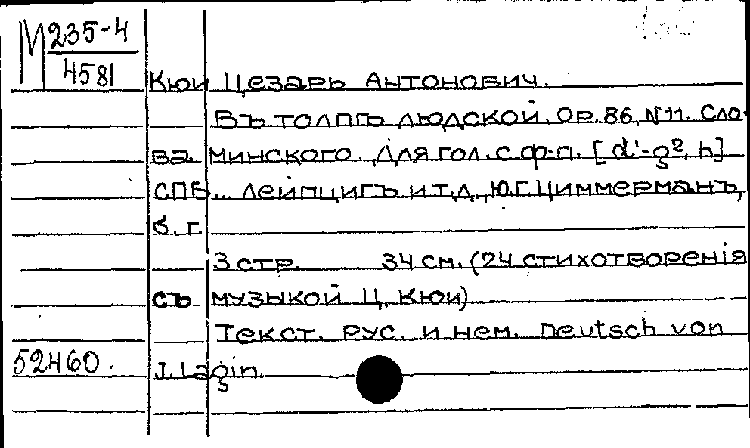 М 235-4
4581
Кюи Цезарь Антонович.
Въ толпѣ людской. Op. 86, N 11. Сло-
ва Минского. Для гол. с ф-п. [d'-g², h]
СПБ., Лейпцигъ и т.д., Ю.Г. Циммерманъ,
б. г.
3 стр. 34 см. (24 стихотворенія
съ музыкой Ц. Кюи)
Текст. рус. и нем. Deutsch von
52460. J. Lagin.